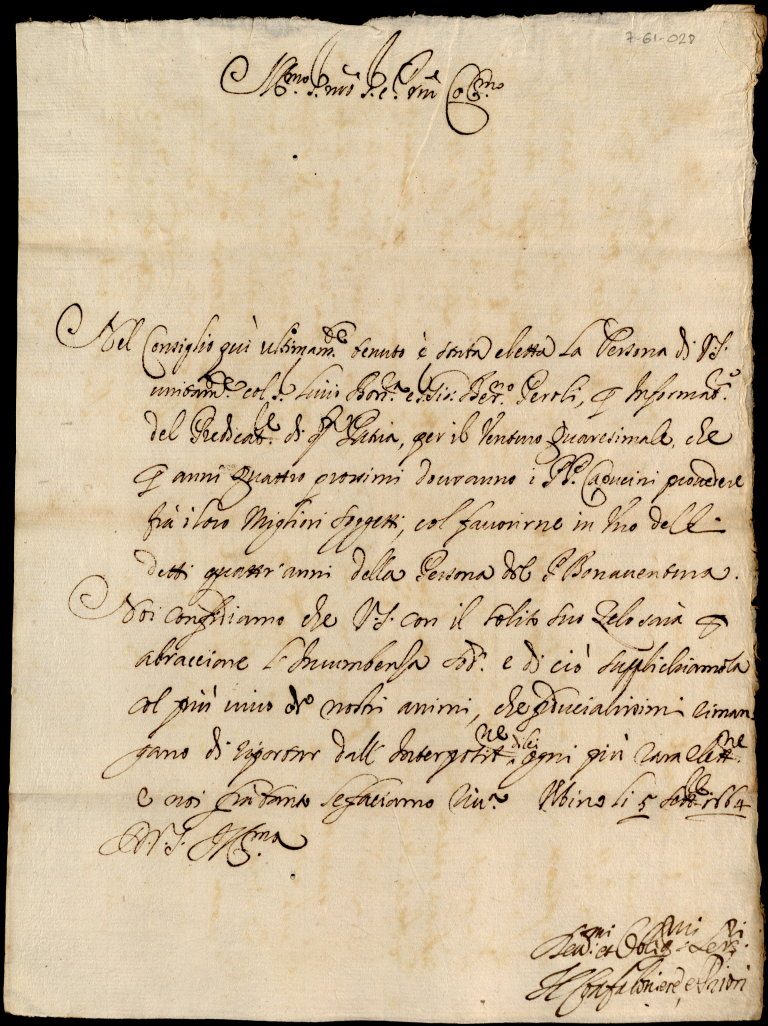 7-61-028
Ill.mo S. nro S.r e P.rone Co.mo
Nel Consiglio quì ultimam.te tenuto è stata eletta La Persona di V.S.
unitam.te col S. Livio Bon.a e S. Gio: Ber.o Peroli, p Informat.e
del Predicat.e di q.ta Patria, per il Venturo Quaresimale, che
p anni quattro prossimi dovranno i PP. Capucini provedere
frà i loro Migliori soggetti, col favorirne in Uno delli
detti quattr'anni della Persona del P. Bonaventura.
Noi confidiamo che V.S. con il solito suo Zelo sarà p
abracciare l'Incumbensa sod.a e di ciò supplichiamola
col più vivo de nostri animi, che fiducialissimi riman
gano di riportar dall'Interposit.ne di lei ogni più rara elett.ne
e noi frà tanto le faciamo riv.a Urbino li 5 Sett.bre 1664
D. V. S. Ill.ma
Dev.mi et Oblig.mi Ser.ri
Il Confaloniere, e Priori